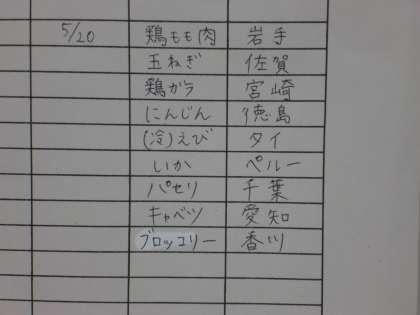 5/20 鶏もも肉 岩手
玉ねぎ 佐賀
鶏ガラ 宮崎
にんじん 徳島
(冷)えび タイ
いか ペルー
パセリ 千葉
キャベツ 愛知
ブロッコリー 香川